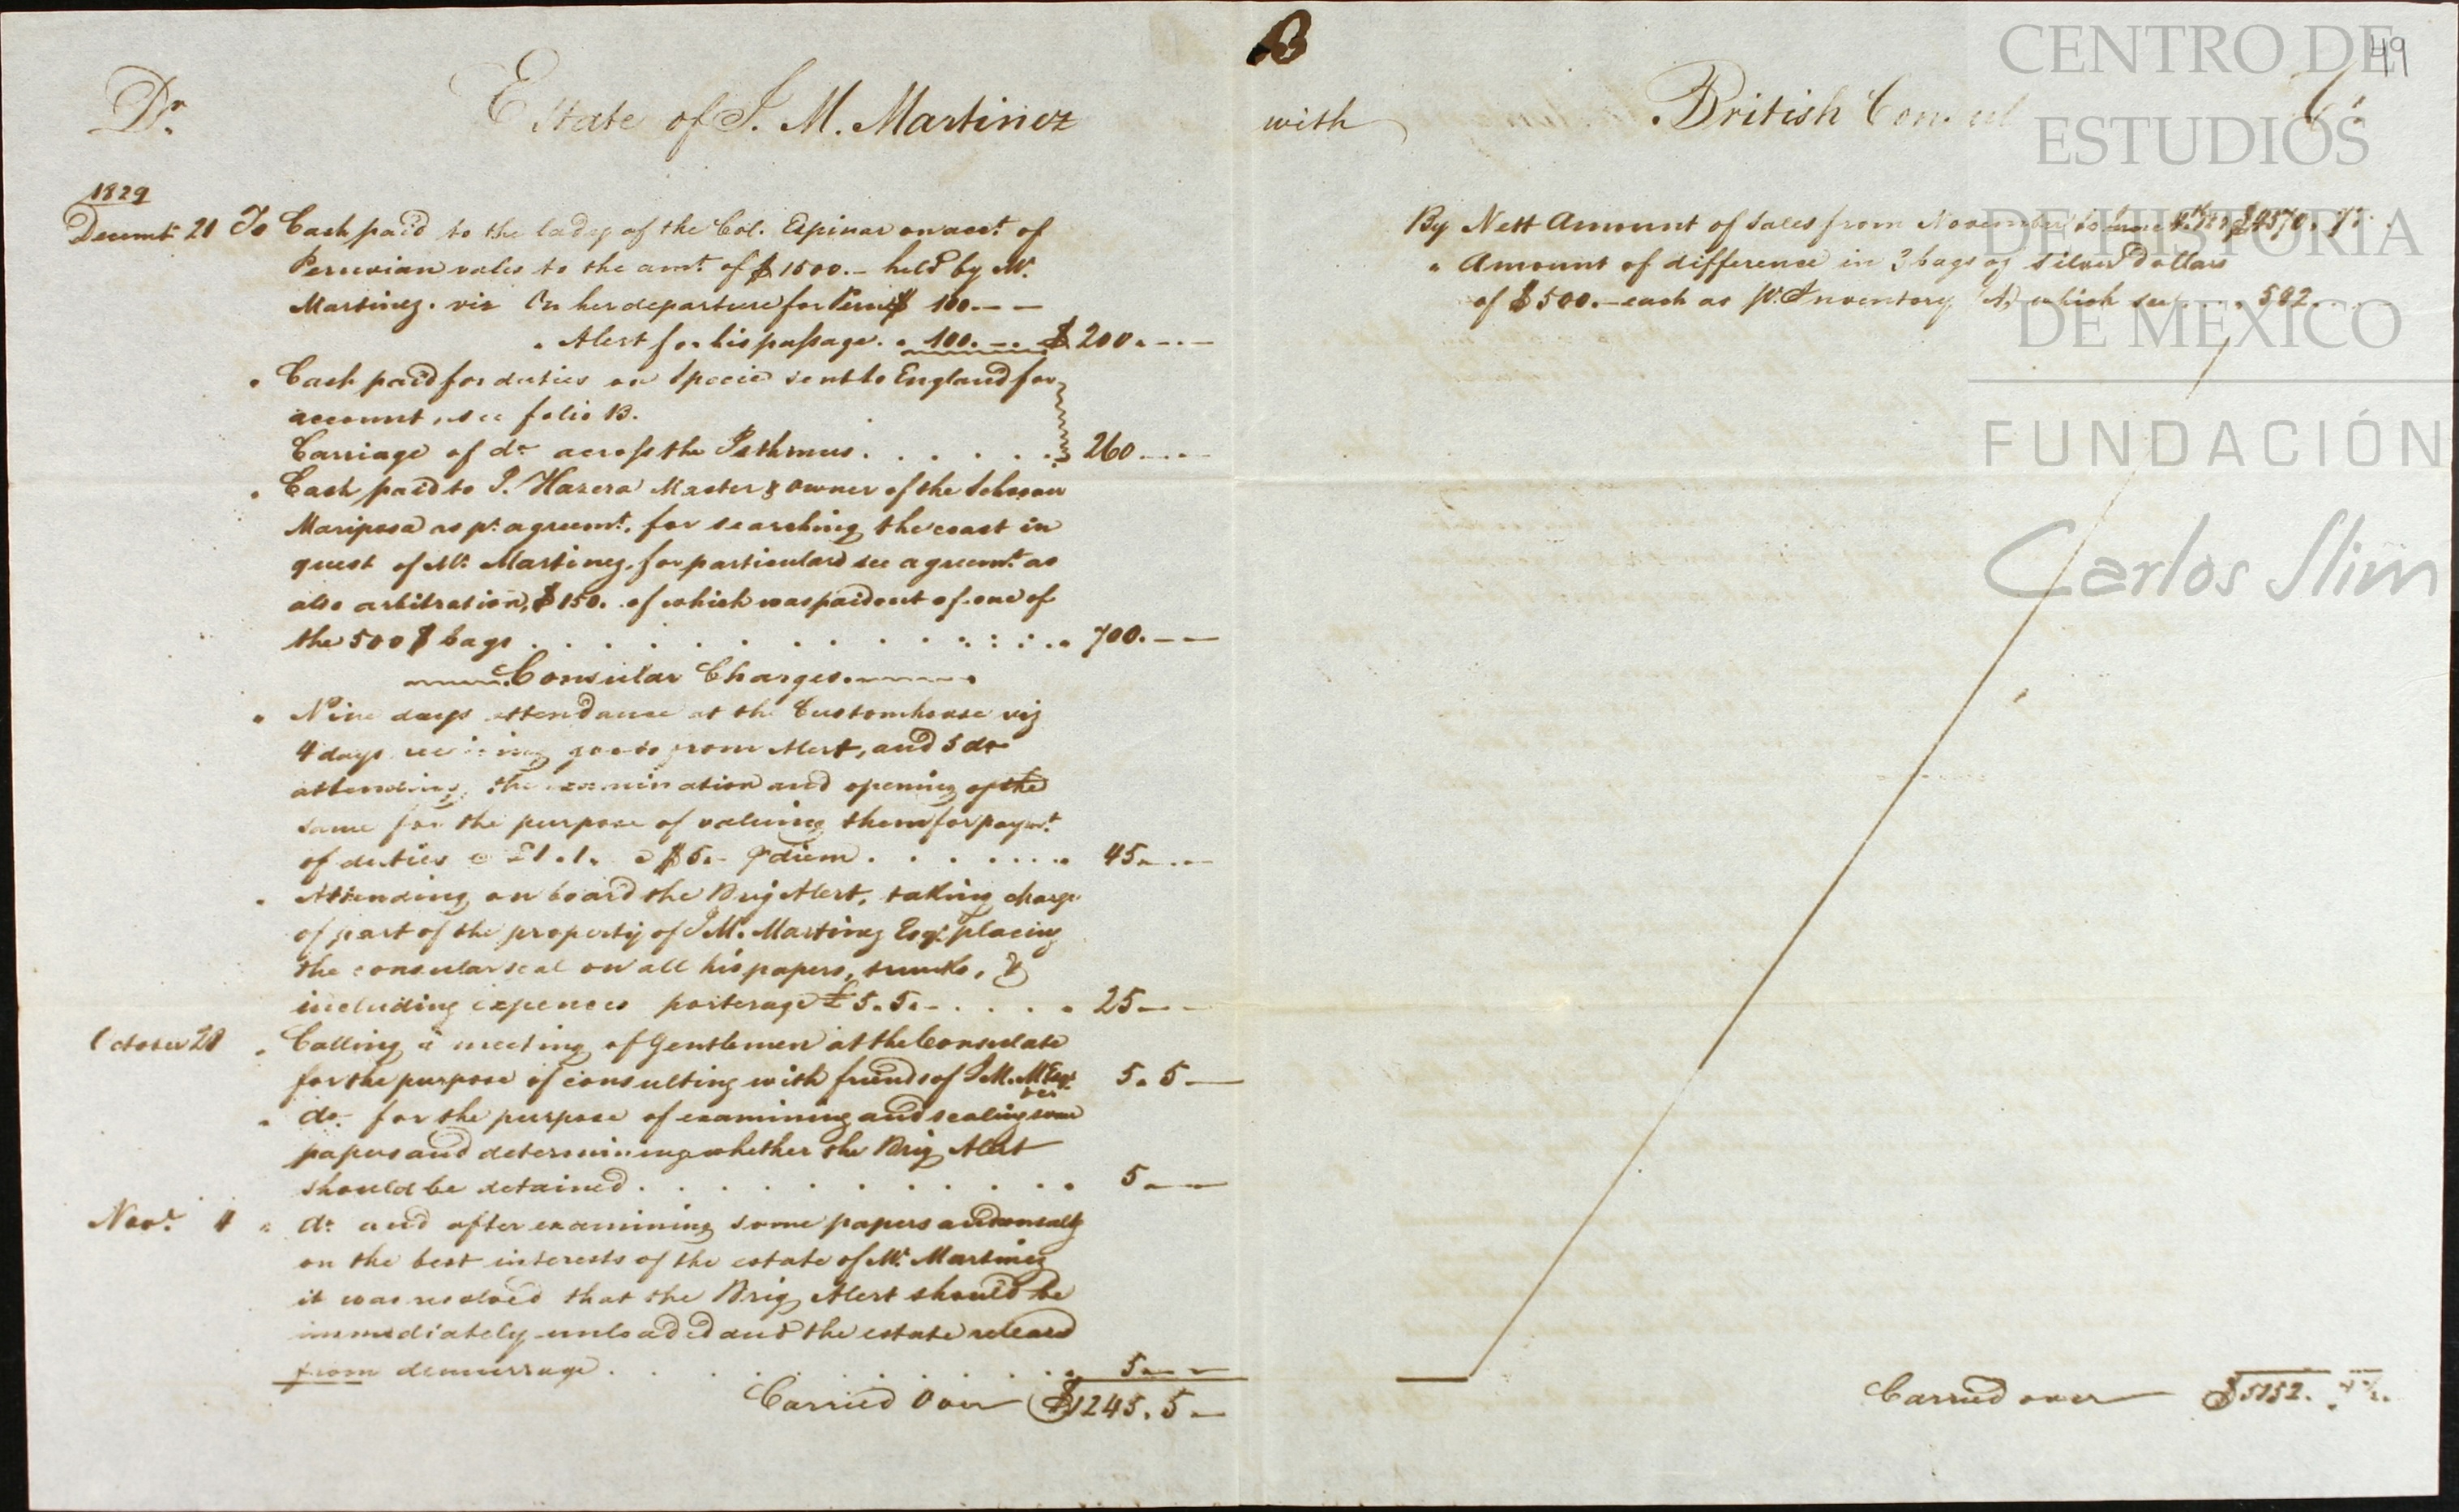 B
49
Dr. Estate of J. M. Martinez with British Consul Cr.
1829
Decembr 21 To Cash paid to the lady of the Col. Espinar on acct. of
Peruvian vales to the amt. of $1500.- held by Mr.
Martinez. viz On her departure for Peru $ 100.--
" Alert for his passage. " 100.-. $ 200.-.-
" Cash paid for duties on Specie sent to England for
account, see folio B.
Carriage of do across the Isthmus. . . . . . 260.-.-
" Cash paid to J. Harera Master & owner of the Schooner
Mariposa as pr. agreemt. for searching the coast in
quest of Mr. Martinez. for particulars see agreemt. as
also arbitration, $150. of which was paid out of one of
the 500 $ bags . . . . . . . . . 700.--
Consular Charges.
" Nine days attendance at the Customhouse viz
4 days receiving goods from Alert, and 5 do
attending the examination and opening of the
same for the purpose of valuing them for paymt.
of duties @ £1.1. @ $5.- pr diem. . . . . 45.-.-
" Attending on board the Brig Alert, taking charge
of part of the property of J M. Martinez Esqr. placing
the consular seal on all his papers, trunks, &
including expences porterage £5.5.- . . . . 25--
October 28 " Calling a meeting of Gentlemen at the Consulate
for the purpose of consulting with friends of J. M. M Esqr. 5.5-
" do. for the purpose of examining and sealing some
papers and determining whether the Brig Alert
should be detained. . . . . . . . 5.--
Novr. 4 " do. and after examining some papers and consultg
on the best interests of the estate of Mr. Martinez
it was resolved that the Brig Alert should be
immediately unloaded and the estate released
from demurrage. . . . . . . 5.--
Carried Over $1245.5-
By Nett Amount of Sales from November to June $4570.
" Amount of difference in 3 bags of silver dollars
of $500.- each as pr. Inventory (A) which see . . . 582.
Carried over $5152.
CENTRO DE
ESTUDIOS
DE HISTORIA
DE MEXICO
FUNDACIÓN
Carlos Slim